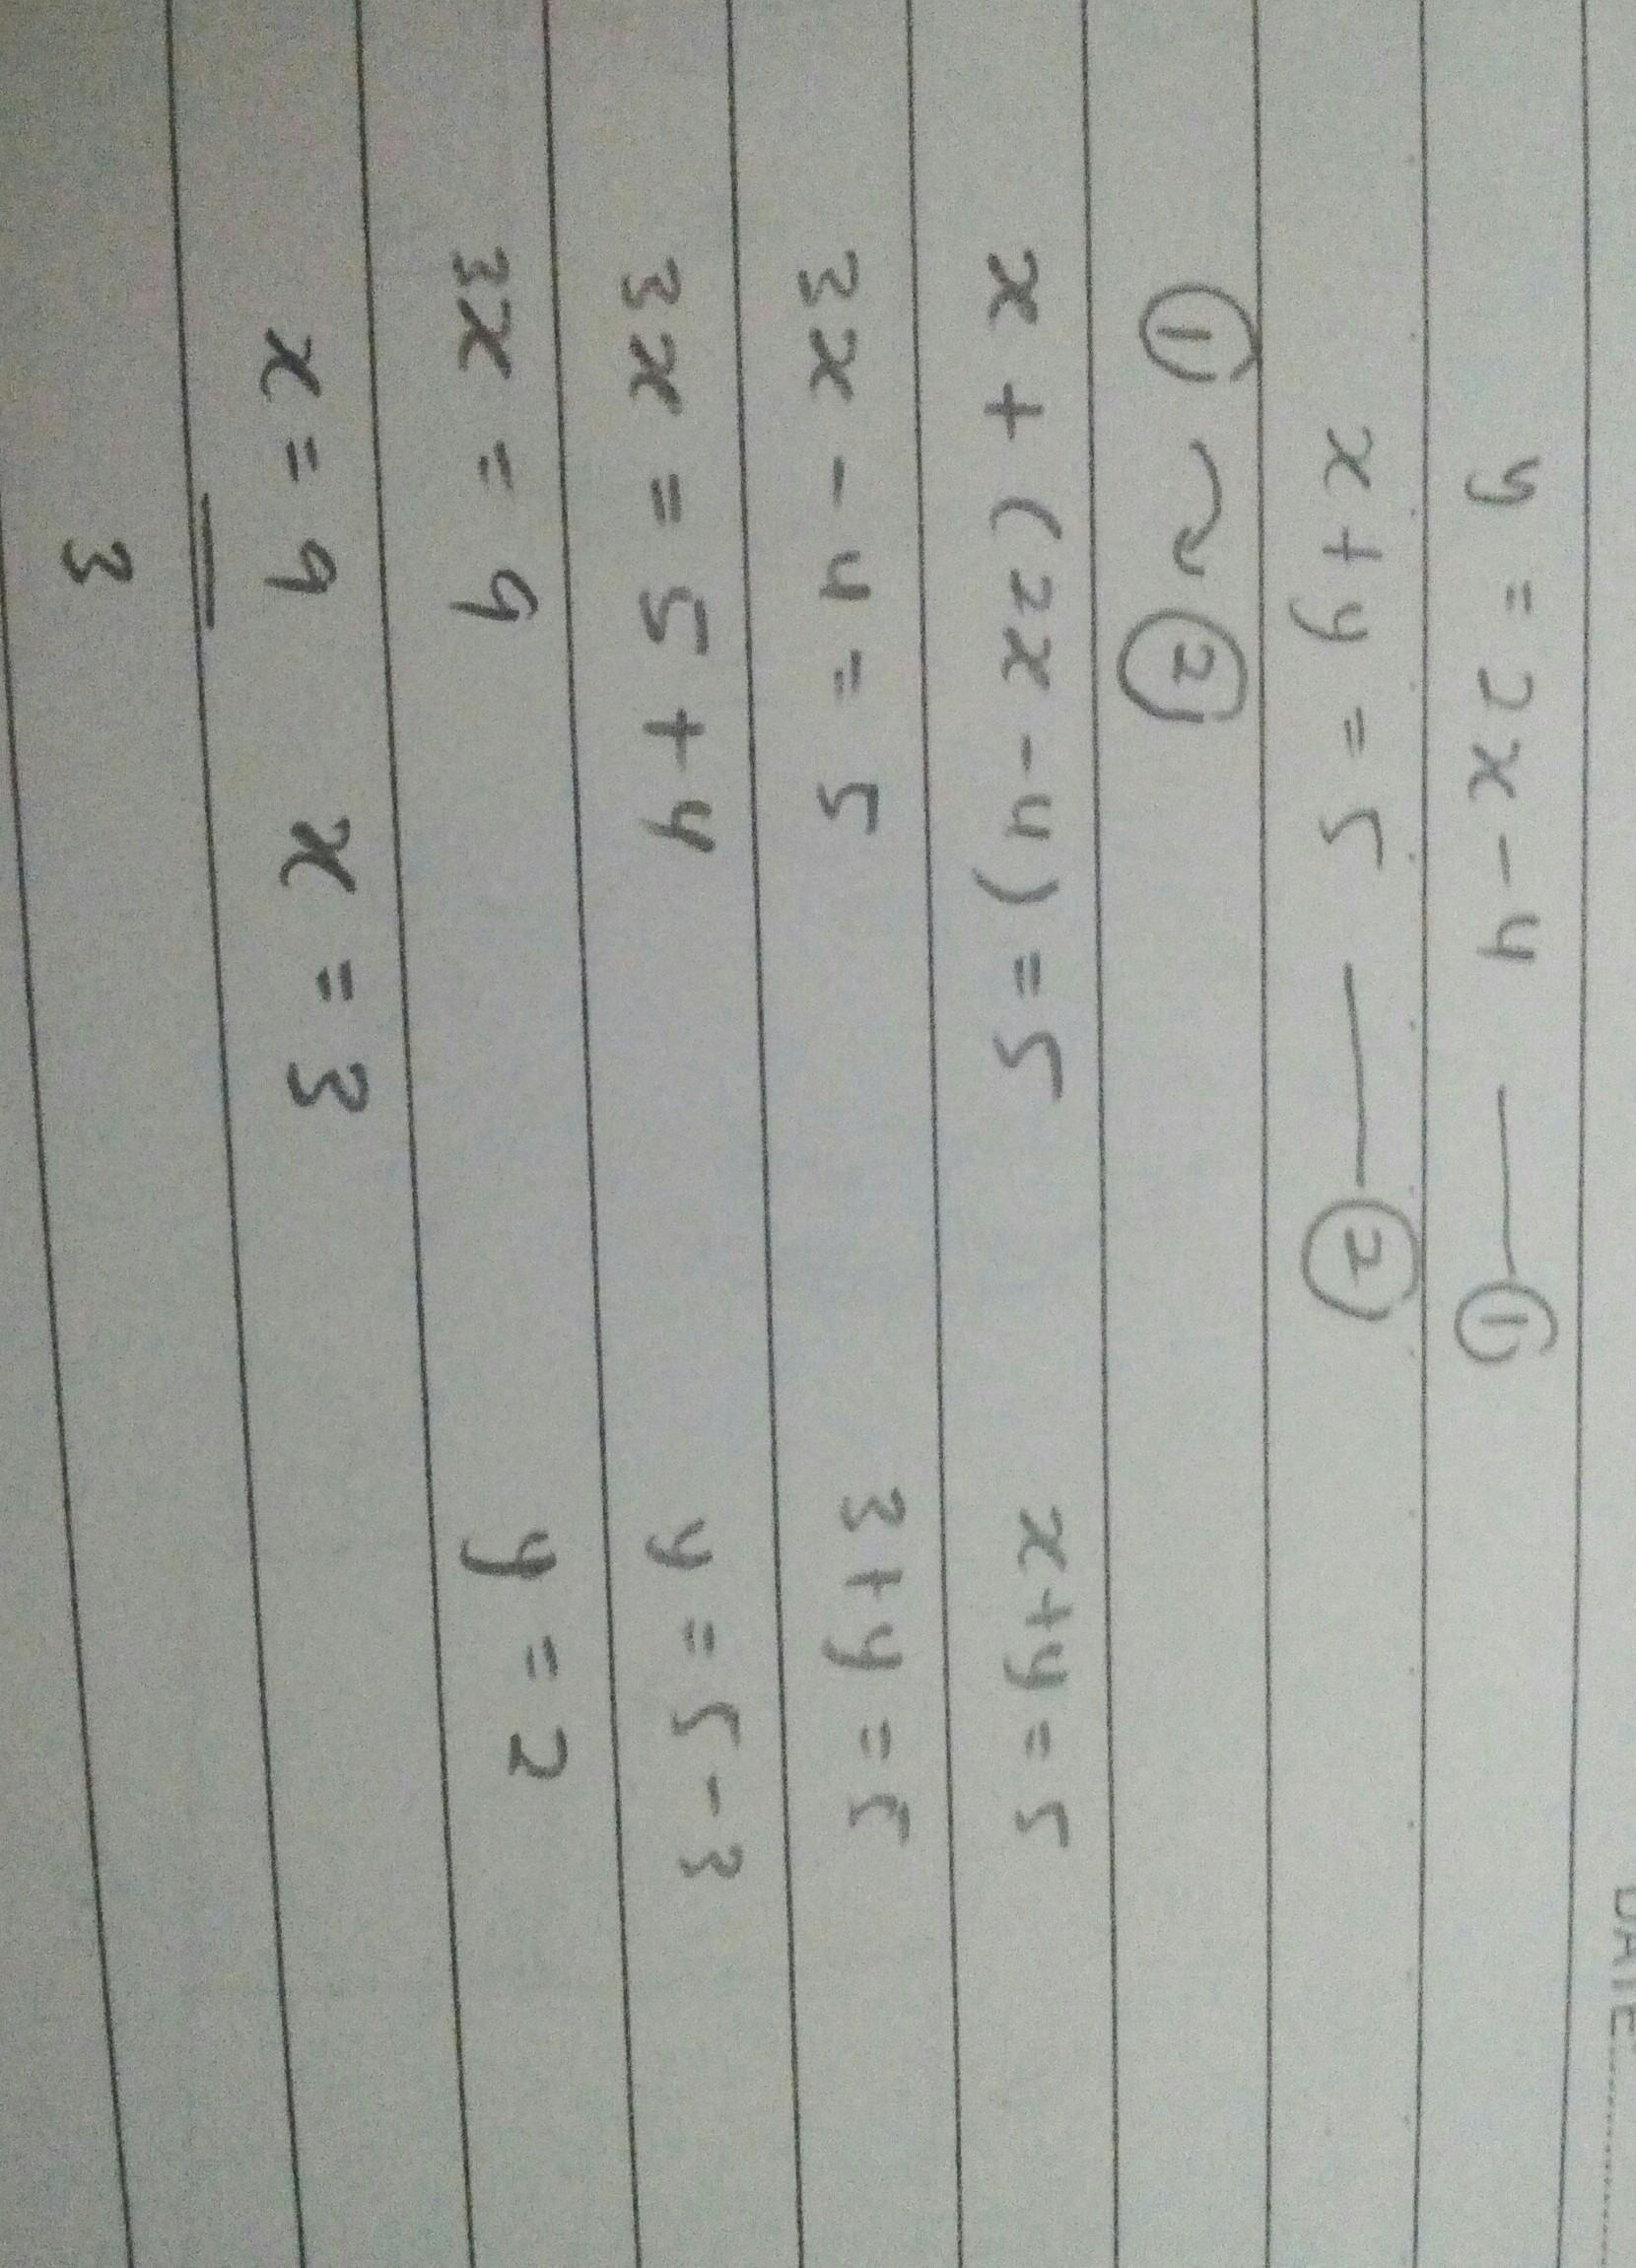 DATE
y = 2x - 4 — ①
x + y = 5 — ②
① ↷ ②
x + (2x - 4) = 5 x + y = 5
3x - 4 = 5 3 + y = 5
3x = 5 + 4 y = 5 - 3
3x = 9 y = 2
x = 9 x = 3
3